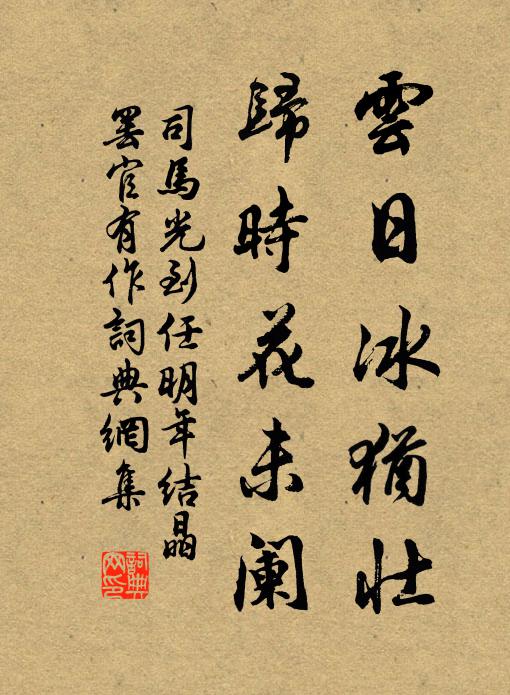 雲日冰猶壯
歸時花未闌
司馬光到任明年結晶
罢官有作詞典網集
詞典网印